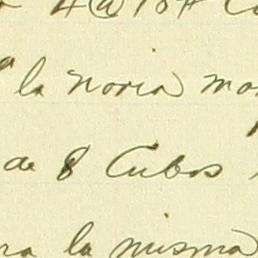 4@18#
la noria
de 8 Cubos
la misma